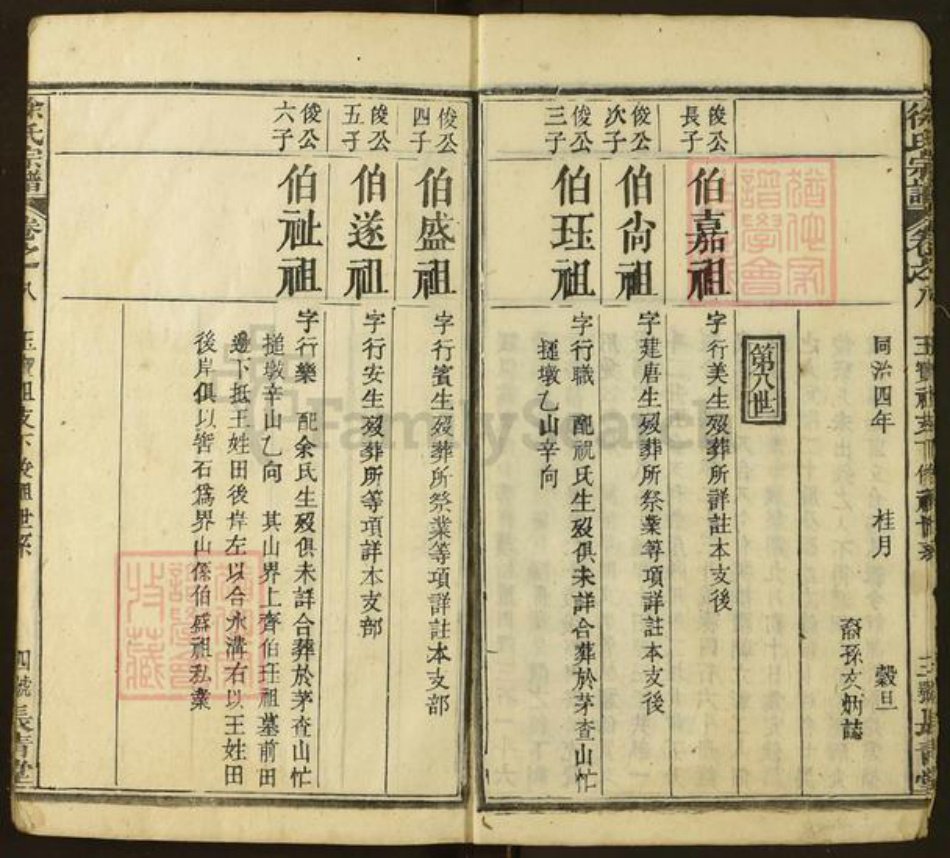 徐氏宗譜
卷之八
同治四年 桂月 穀旦
裔孫文炳誌
第八世
俊公長子
伯嘉祖
字行美生歿葬所詳註本支後
俊公次子
伯尙祖
字建唐生歿葬所祭業等項詳註本支後
俊公三子
伯珏祖
字行職 配祝氏生歿俱未詳合葬於茅查山忙
搥墩乙山辛向
俊公四子
伯盛祖
字行賓生歿葬所祭業等項詳註本支部
俊公五子
伯遂祖
字行安生歿葬所等項詳本支部
俊公六子
伯祉祖
字行樂 配余氏生歿俱未詳合葬於茅查山忙
搥墩辛山乙向 其山界上齊伯珏祖墓前田
邊下抵王姓田後岸左以合水溝右以王姓田
後岸俱以砦石爲界山係伯盛祖私業
徐氏宗譜
卷之八
四號 長青堂
FamilySearch